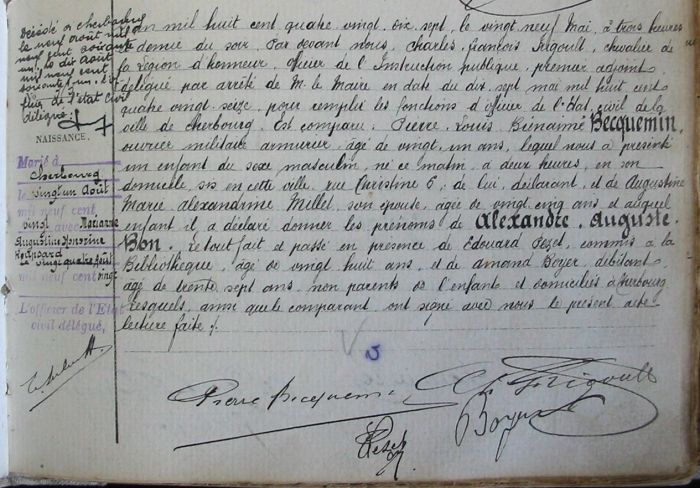 Décédé à Cherbourg
le neuf août mil
neuf cent soixante
un. Le dix Août
mil neuf cent
soixante un.
de l'état civil
délégué.
NAISSANCE.
Marié à
Cherbourg
le vingt un Août
mil neuf cent
vingt avec Marianne
Augustine Honorine
vingt quatre Août
mil neuf cent vingt
L'officier de l'Etat
civil délégué,
L'an mil huit cent quatre vingt dix sept, le vingt neuf Mai, à trois heures
demie du soir, Par devant nous, Charles, François Frigoult, chevalier de
la Légion d'honneur, officier de l'Instruction publique, premier adjoint
délégué par arrêté de M. le Maire en date du dix sept mai mil huit cent
quatre vingt seize, pour remplir les fonctions d'officier de l'Etat civil de la
ville de Cherbourg. Est comparu: Pierre, Louis, Bienaimé Becquemin,
ouvrier militaire armurier, âgé de vingt un ans, lequel nous a présenté
un enfant du sexe masculin, né ce matin à deux heures, en son
domicile sis en cette ville, rue Christine 6; de lui, déclarant, et de Augustine
Marie Alexandrine Millet, son épouse, âgée de vingt cinq ans et auquel
enfant il a déclaré donner les prénoms de Alexandre, Auguste,
Bon. Le tout fait et passé en présence de Edouard Pezet, commis à la
Bibliothèque, âgé de vingt huit ans, et de Amand Boyer, débitant,
âgé de trente sept ans, non parents de l'enfant et domiciliés à Cherbourg
Lesquels, ainsi que le comparant ont signé avec nous le présent acte
lecture faite /.
Pierre Becquemin
Ch. Frigoult
Pezet
Boyer